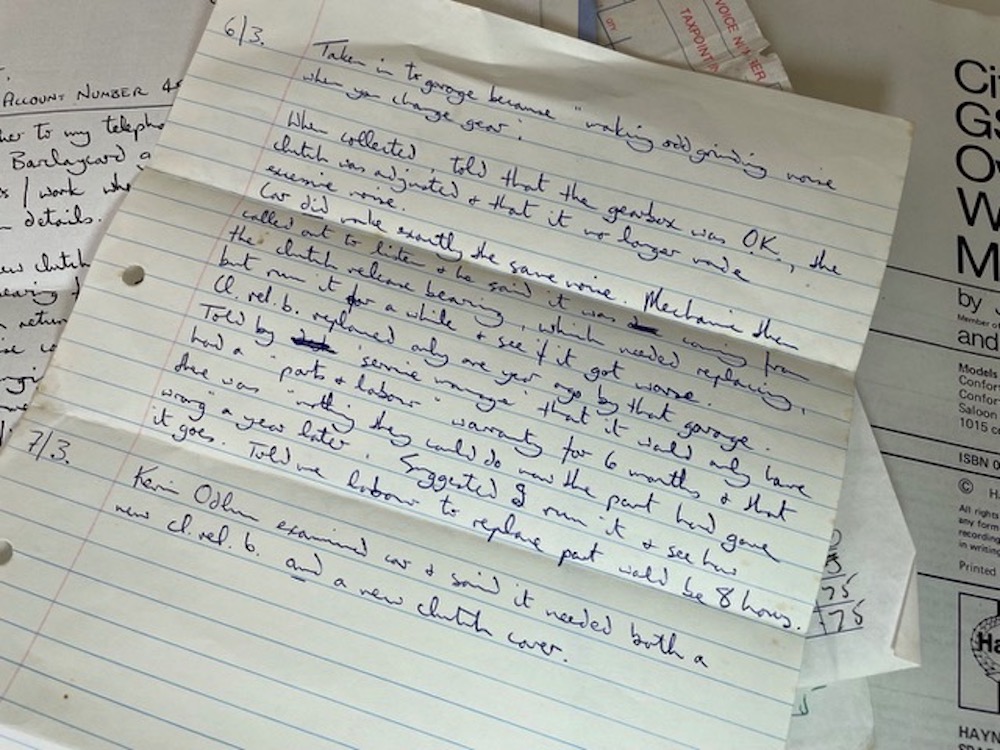 6/3.
Taken in to garage because "making odd grinding noise
when you change gear".
When collected, told that the gearbox was OK, the
clutch was adjusted & that it no longer made
excessive noise.
Car did make exactly the same noise. Mechanic then
called out to listen & he said it was coming from
the clutch release bearing, which needed replacing,
but run it for a while & see if it got worse.
Cl. rel. b. replaced only one year ago by that garage.
Told by "service manager" that it would only have
had a "parts & labour" warranty for 6 months & that
there was "nothing they could do now the part had gone
wrong" a year later. Suggested I run it & see how
it goes. Told me labour to replace part would be 8 hours.
7/3.
Kevin examined car & said it needed both a
new cl. rel. b. and a new clutch cover.
ACCOUNT NUMBER 4
to my
Barclaycard
/ work
details.
clutch
VOICE
TAXPOINT
QTY
75
75
Ci
GS
O
W
M
by
and
Models
Confor
Confor
Saloon
1015 c
ISBN 0
© H
All rights
any form
recording
in writing
Printed
Ha
HAYN